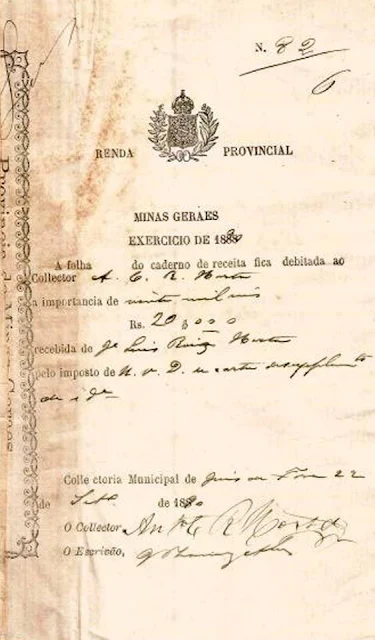 N. 82
6
RENDA PROVINCIAL
MINAS GERAES
EXERCICIO DE 188
A folha do caderno de receita fica debitada ao
Collector A. C. R. Horta
a importancia de vinte mil reis
Rs. 20$000
recebida de Je Luis Horta
pelo imposto de N. v D.
Collectoria Municipal de Juis de Fora 22
de Setbº de 1880
O Collector R Horta
O Escrivão,
Provincia de Minas Geraes